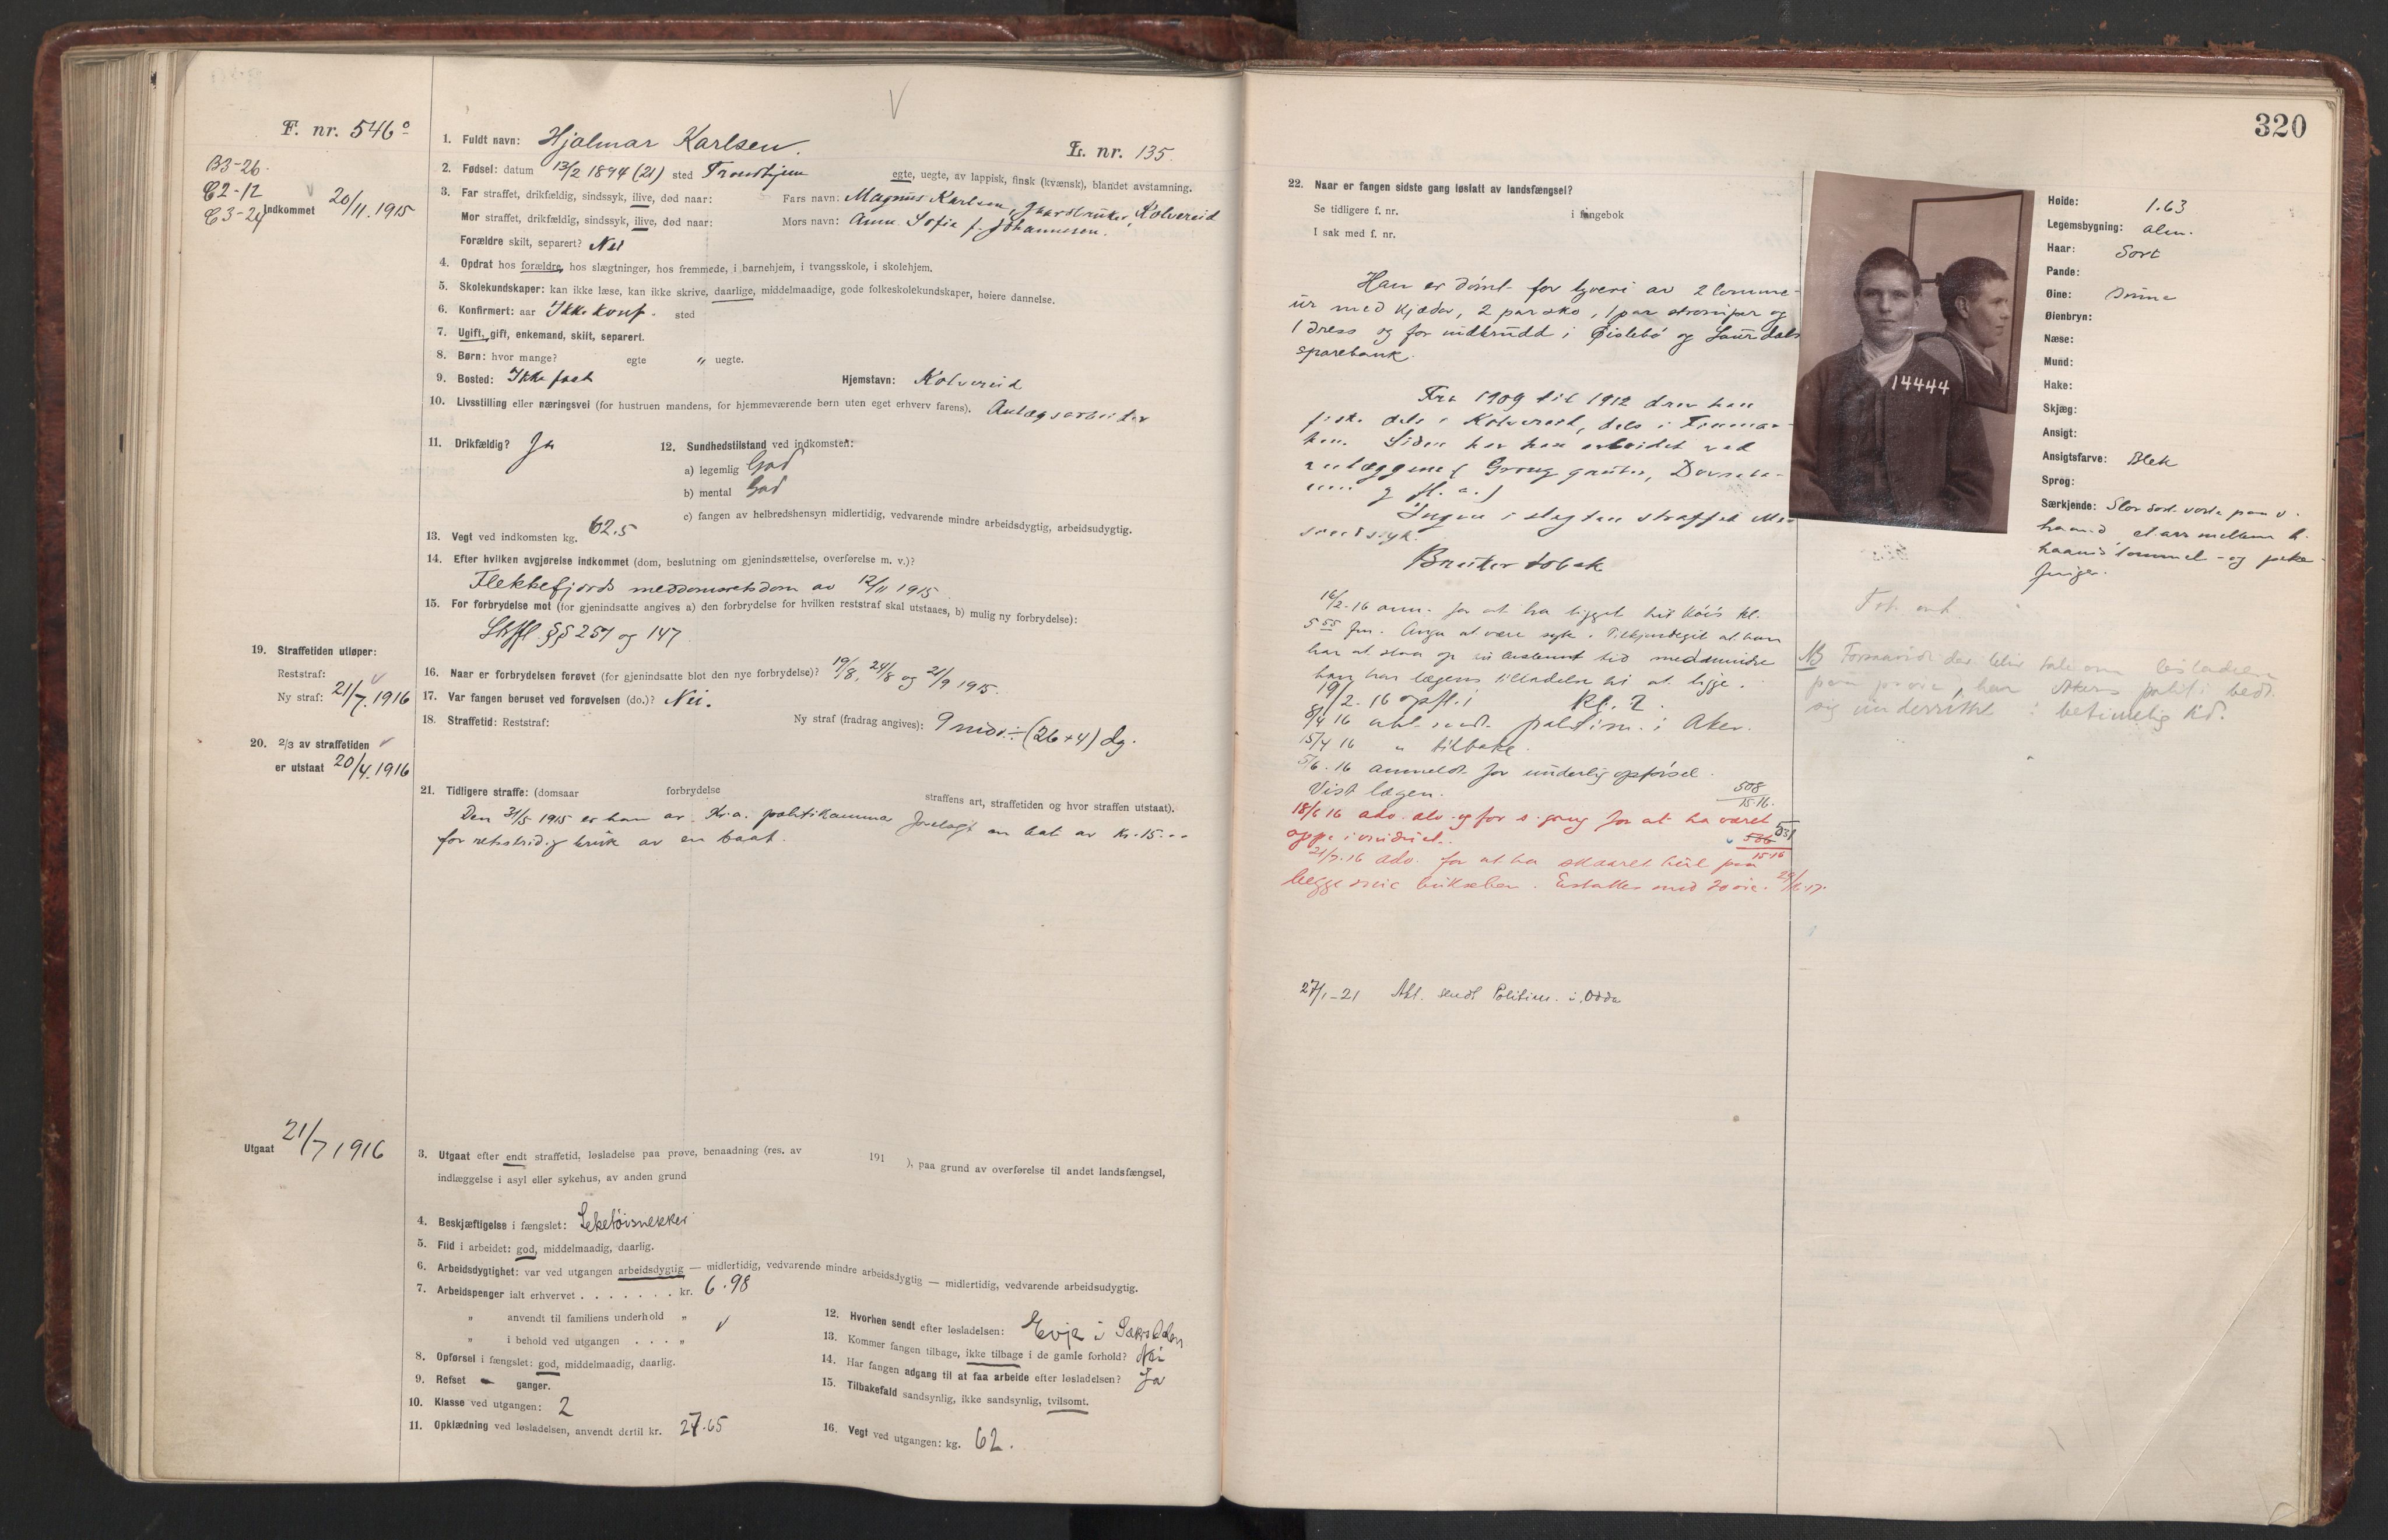 F. nr. 546º
B3-26.
C2-12
C3-24
Indkommet 20/11. 1915
V
1. Fuldt navn: Hjalmar Karlsen.
L. nr. 135
2. Fødsel: datum 13/2 1894 (21) sted Trondhjem egte, uegte, av lappisk, finsk (kvænsk), blandet avstamning.
3. Far straffet, drikfældig, sindssyk, ilive, død naar: Fars navn: Magnus Karlsen, gaardbruker, Kolvereid
Mor straffet, drikfældig, sindssyk, ilive, død naar: Mors navn: Anna Sofie f. Johannesen.
Forældre skilt, separert? Nei
4. Opdrat hos forældre, hos slægtninger, hos fremmede, i barnehjem, i tvangsskole, i skolehjem.
5. Skolekundskaper: kan ikke læse, kan ikke skrive, daarlige, middelmaadige, gode folkeskolekundskaper, høiere dannelse.
6. Konfirmert: aar Ikke konf. sted
7. Ugift, gift, enkemand, skilt, separert.
8. Børn: hvor mange? egte " uegte.
9. Bosted: Ikke fast Hjemstavn: Kolvereid
10. Livsstilling eller næringsvei (for hustruen mandens, for hjemmeværende børn uten eget erhverv farens). Anlægsarbeider
11. Drikfældig? Ja
12. Sundhedstilstand ved indkomsten:
a) legemlig God
b) mental God
c) fangen av helbredshensyn midlertidig, vedvarende mindre arbeidsdygtig, arbeidsudygtig.
13. Vegt ved indkomsten kg. 62.5
14. Efter hvilken avgjørelse indkommet (dom, beslutning om gjenindsættelse, overførelse m. v.)?
Flekkefjords meddomsretsdom av 12/11 1915
15. For forbrydelse mot (for gjenindsatte angives a) den forbrydelse for hvilken reststraf skal utstaaes, b) mulig ny forbrydelse):
Strfl §§ 257 og 147
16. Naar er forbrydelsen forøvet (for gjenindsatte blot den nye forbrydelse)? 19/8, 24/8 og 21/9 1915.
17. Var fangen beruset ved forøvelsen (do.)? Nei.
18. Straffetid: Reststraf: Ny straf (fradrag angives): 9 mdr. ÷ (26 + 4) dg.
19. Straffetiden utløper:
Reststraf:
Ny straf: 21/7. 1916
20. 2/3 av straffetiden
er utstaat 20/4. 1916
21. Tidligere straffe: (domsaar forbrydelse straffens art, straffetiden og hvor straffen utstaat).
Den 31/5 1915 er han av Kr.a. politikammer forelagt en bot av Kr. 15.--
for retsstridig bruk av en baat.
Utgaat 21/7 1916
3. Utgaat efter endt straffetid, løsladelse paa prøve, benaadning (res. av 191 ), paa grund av overførelse til andet landsfængsel,
indlæggelse i asyl eller sykehus, av anden grund
4. Beskjæftigelse i fængslet: Leketøisnekker
5. Flid i arbeidet: god, middelmaadig, daarlig.
6. Arbeidsdygtighet: var ved utgangen arbeidsdygtig — midlertidig, vedvarende mindre arbeidsdygtig — midlertidig, vedvarende arbeidsudygtig.
7. Arbeidspenger ialt erhvervet . . . . . . . kr. 6.98
" anvendt til familiens underhold "
" i behold ved utgangen . . . "
8. Opførsel i fængslet: god, middelmaadig, daarlig.
9. Refset - ganger.
10. Klasse ved utgangen: 2
11. Opklædning ved løsladelsen, anvendt dertil kr. 27.65
12. Hvorhen sendt efter løsladelsen: Evje i Sætesdalen
13. Kommer fangen tilbage, ikke tilbage i de gamle forhold? Nei
14. Har fangen adgang til at faa arbeide efter løsladelsen? Ja
15. Tilbakefald sandsynlig, ikke sandsynlig, tvilsomt.
16. Vegt ved utgangen: kg. 62.
320
22. Naar er fangen sidste gang løslatt av landsfængsel?
Se tidligere f. nr. i fangebok
I sak med f. nr.
Han er dømt for tyveri av 2 lomme-
ur med kjæder, 2 par sko, 1 par strømper og
1 dress og for indbrudd i Øislebø og Laudals
sparebank.
Fra 1909 til 1912 drev han
fiske dels i Kolvereid, dels i Finmar-
ken. Siden har han arbeidet ved
anlæggene (Grong gruber, Dovreba-
nen g fl. a.)
Ingen i slegten straffet
sindssyk.
Bruker tobak
16/2.16 anm. for at ha ligget til køis kl.
5 55 fm. Angir at være syk. Tilkjendegit at han
har at staa op til bestemt tid medmindre
han har lægens tilladelse til at ligge.
19/2.16 opfl. i Kl. 2.
8/4 16 abl. sendt politim. i Aker.
15/4 16 " tilbake.
5/6.16 anmeldt for underlig opførsel.
Vist lægen. 508/15.16.
18/6 16 adv. alv. og for s. gang for at ha været 531
oppe i vinduet. 506/15-16
21/7.16 adv. for at ha skaaret hul paa
begge sine bukseben. Erstattes med 20 øre.
27/1-21 Abl. sendt Politim. i Odda
14444
Høide: 1.63
Legemsbygning: alm.
Haar: Sort
Pande:
Øine: Brune
Øienbryn:
Næse:
Mund:
Hake:
Skjæg:
Ansigt:
Ansigtsfarve: Blek
Sprog:
Særkjende: Stor sort vorte paa v.
haand, et arr mellem h.
haands tommel- og peke-
finger.
NB Forsaavidt der blir tale om løsladelse
paa prøve, har Akers politi bedt
sig underrettet i betimelig tid.